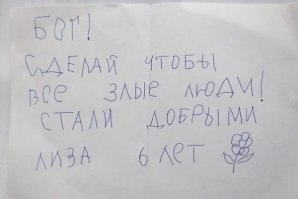 БОГ!
СДЕЛАЙ ЧТОБЫ
ВСЕ ЗЛЫЕ ЛЮДИ!
СТАЛИ ДОБРЫМИ
ЛИЗА 6 ЛЕТ